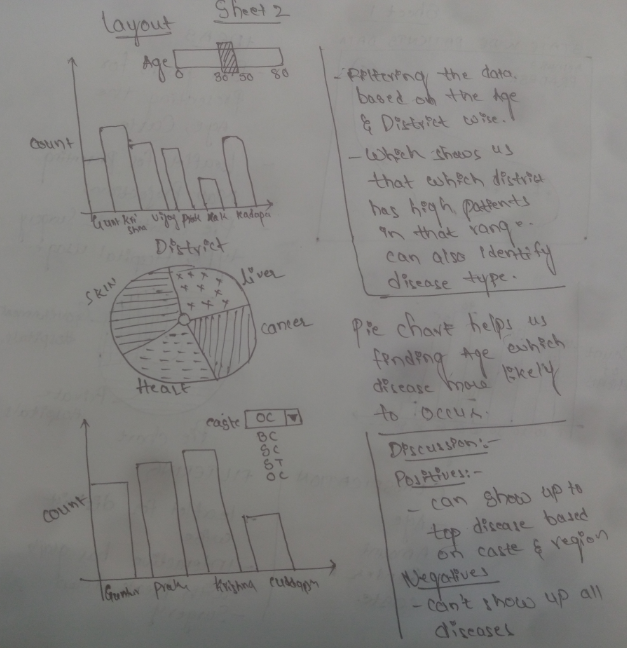 Layout
Sheet 2
Age
0 30 50 80
count
Krishna Vijay Prak Kadapa
District
SKIN
Liver
Cancer
Heart
caste OC
BC
SC
ST
OC
count
Guntur Prak Krishna Cuddapa
- Filtering the data
based on the Age
& District wise.
- Which shows us
that which district
has high patients
in that range.
can also identify
disease type.
Pie chart helps us
finding Age which
disease more likely
to occur.
Discussion:-
Positives:-
- can show up to
top disease based
on caste & region
Negatives
- can't show up all
diseases